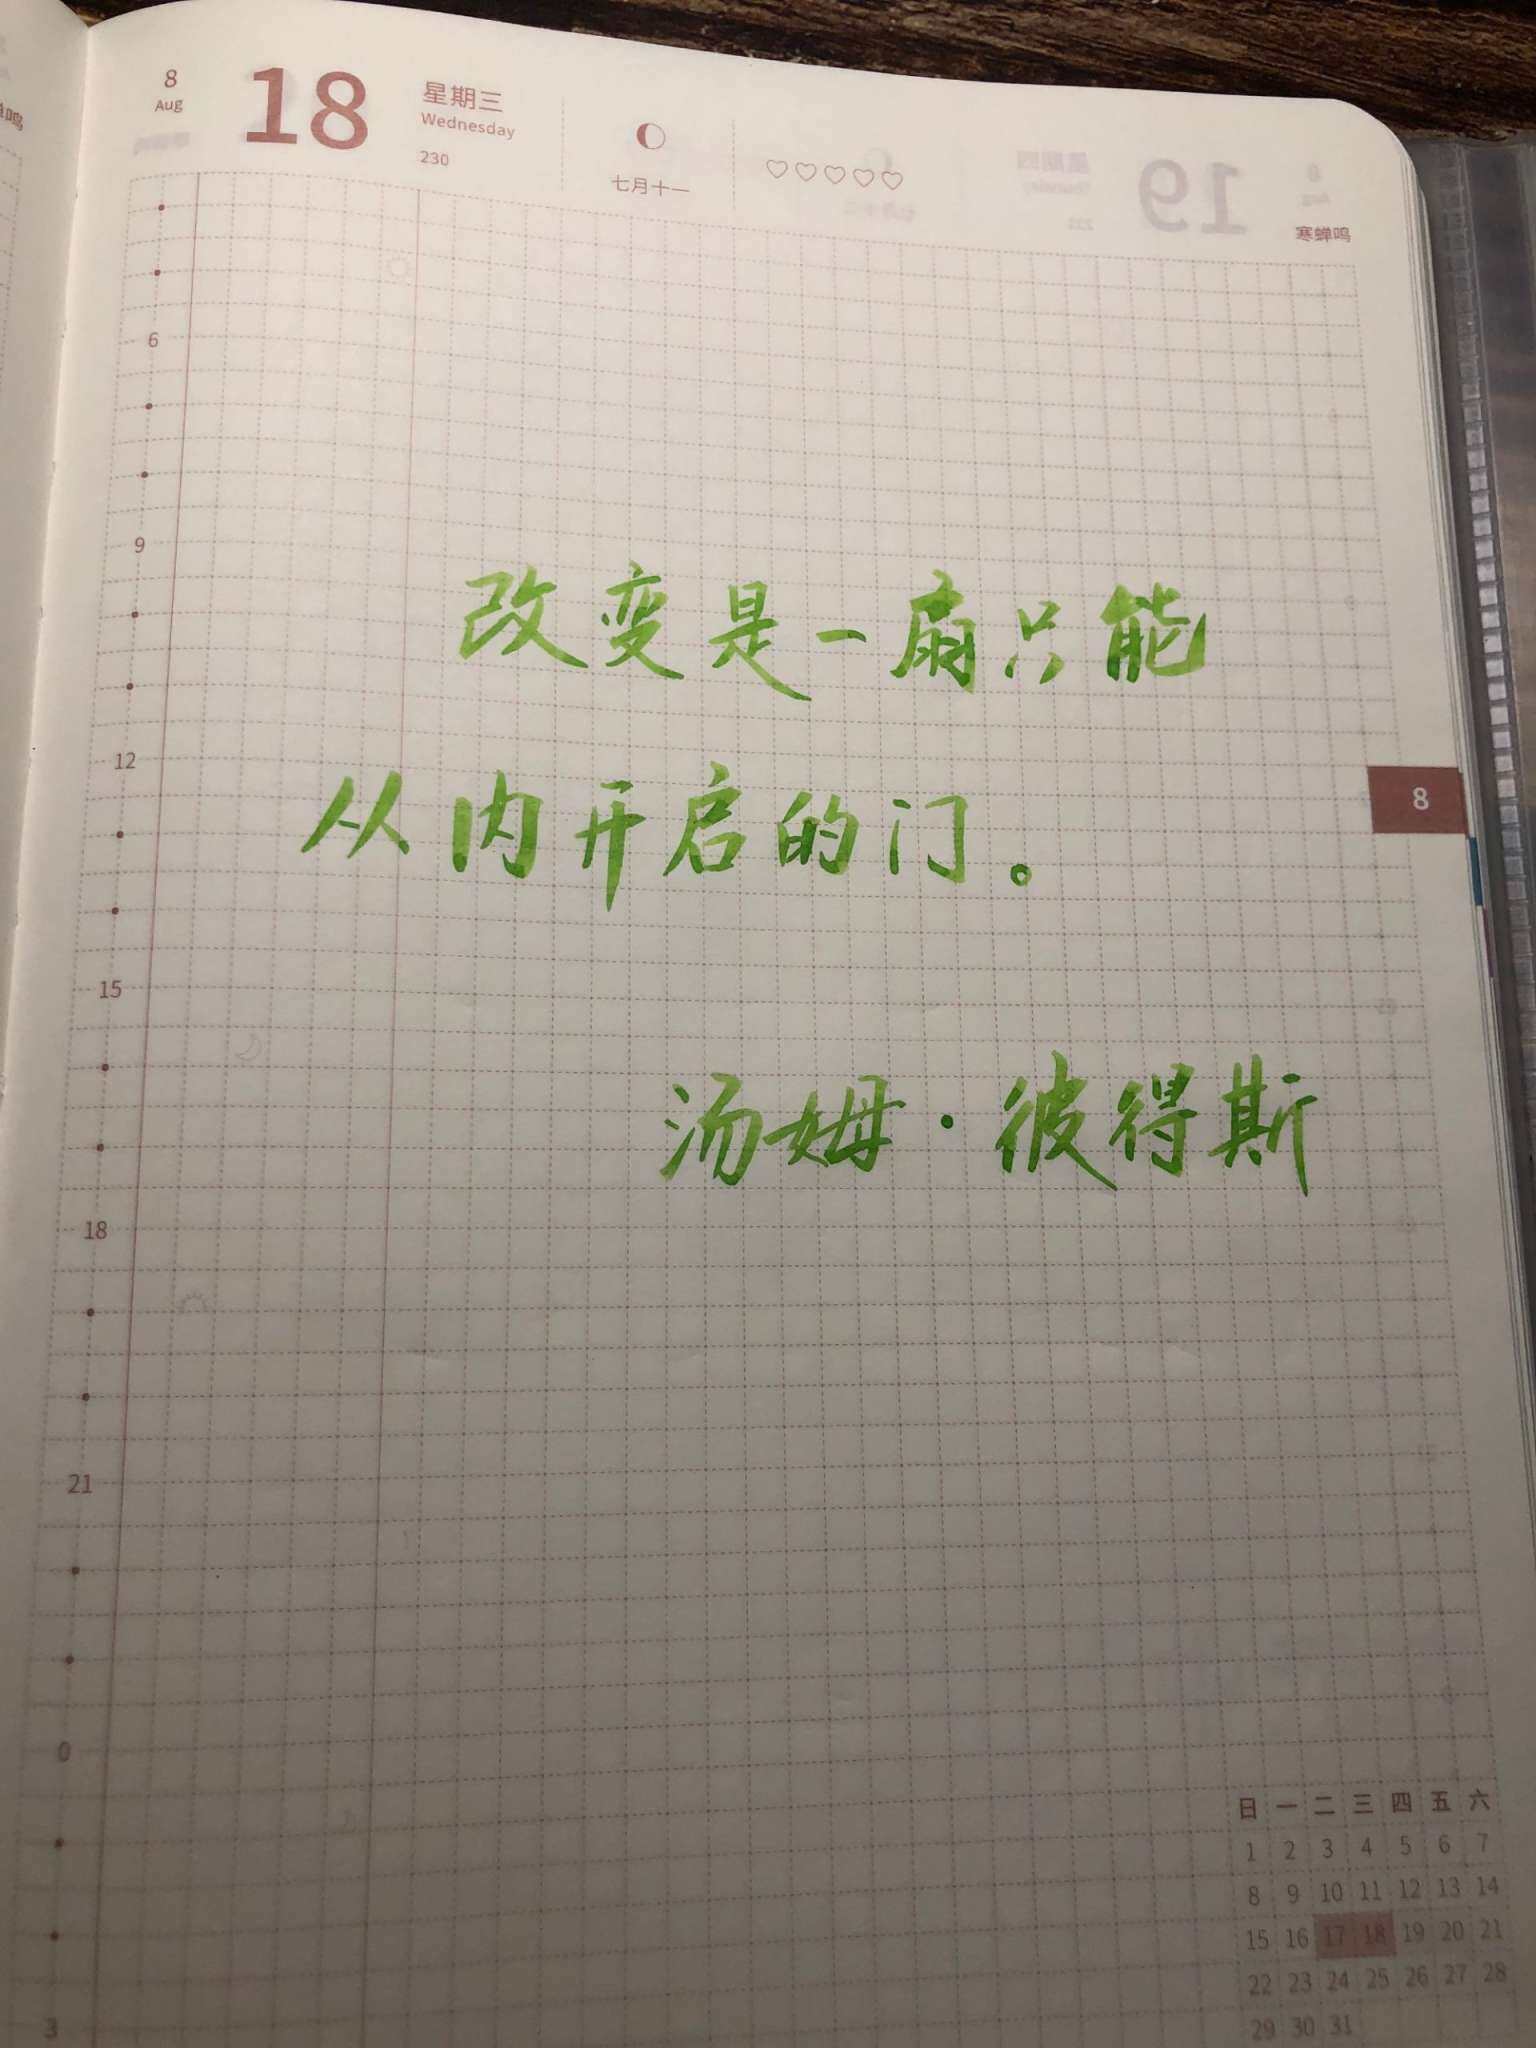 8
Aug
18
星期三
Wednesday
230
七月十一
寒蝉鸣
6
9
改变是一扇只能
12
从内开启的门。
8
15
汤姆·彼得斯
18
21
0
3
日 一 二 三 四 五 六
1 2 3 4 5 6 7
8 9 10 11 12 13 14
15 16 17 18 19 20 21
22 23 24 25 26 27 28
29 30 31